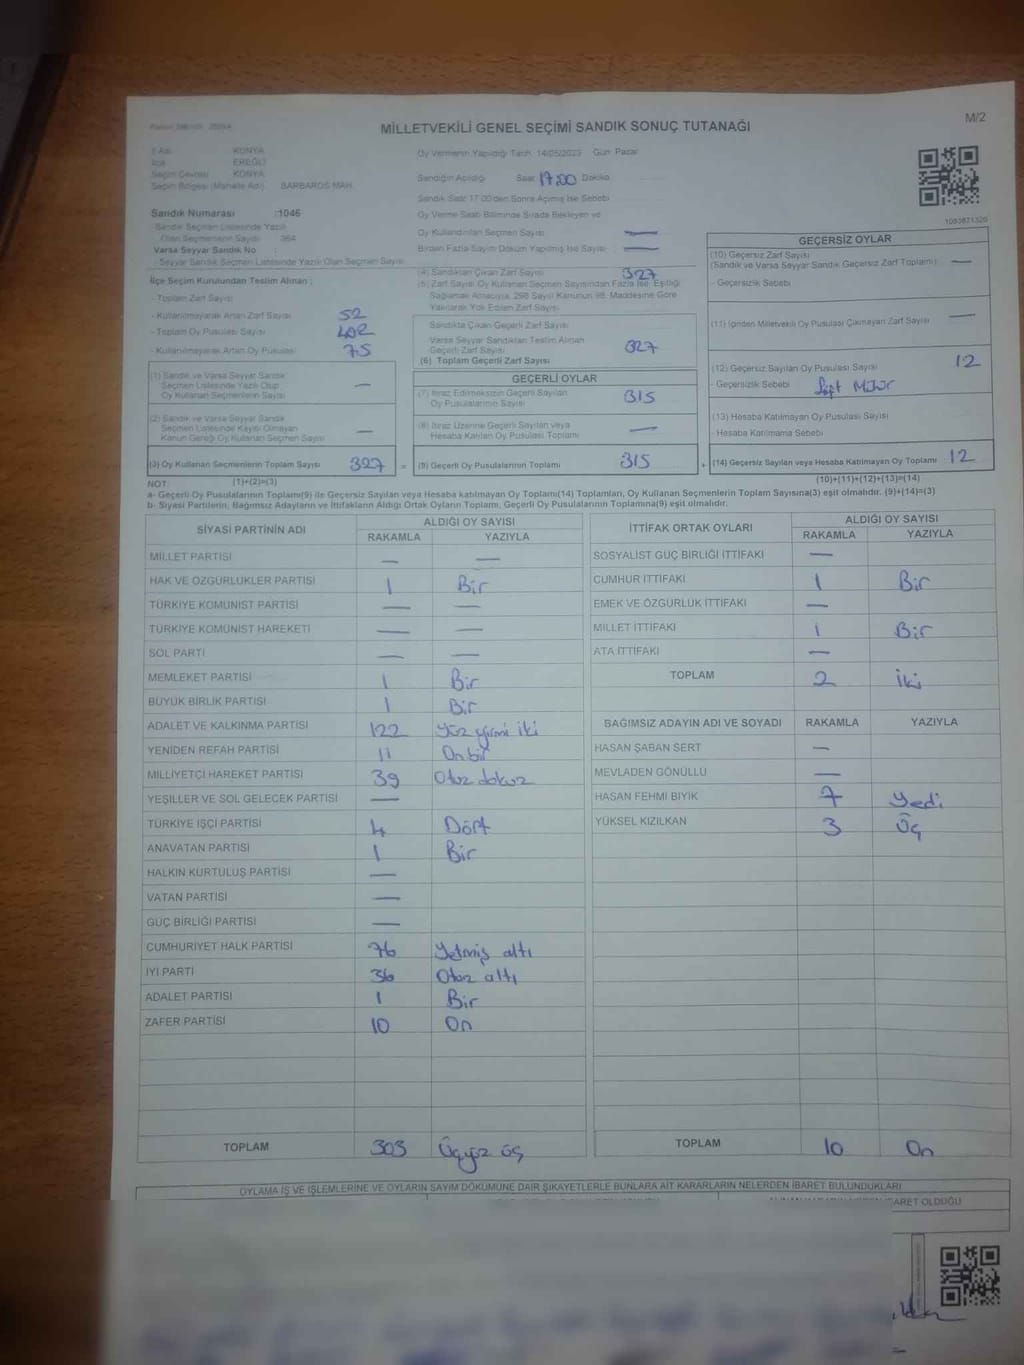 M/2
MİLLETVEKİLİ GENEL SEÇİMİ SANDIK SONUÇ TUTANAĞI
KONYA
EREĞLİ
Seçim Çevresi KONYA
Seçim Bölgesi (Mahalle Adı) BARBAROS MAH.
Sandık Numarası :1046
Sandık Seçmen Listesinde Yazılı
Olan Seçmenlerin Sayısı 394
Varsa Seyyar Sandık No :
- Seyyar Sandık Seçmen Listesinde Yazılı Olan Seçmen Sayısı
İlçe Seçim Kurulundan Teslim Alınan ;
- Toplam Zarf Sayısı
- Kullanılmayarak Artan Zarf Sayısı 52
- Toplam Oy Pusulası Sayısı 402
- Kullanılmayarak Artan Oy Pusulası 75
(1) Sandık ve Varsa Seyyar Sandık
Seçmen Listesinde Yazılı Olup
Oy Kullanan Seçmenlerin Sayısı —
(2) Sandık ve Varsa Seyyar Sandık
Seçmen Listesinde Kaydı Olmayan
Kanun Gereği Oy Kullanan Seçmen Sayısı —
(3) Oy Kullanan Seçmenlerin Toplam Sayısı 327 =
(1)+(2)=(3)
Oy Vermenin Yapıldığı Tarih 14/05/2023 Gün Pazar
Sandığın Açıldığı Saat 17.00 Dakika
Sandık Saat 17.00'den Sonra Açılmış İse Sebebi
Oy Verme Saati Bitiminde Sırada Bekleyen ve
Oy Kullandırılan Seçmen Sayısı —
Birden Fazla Sayım Döküm Yapılmış İse Sayısı —
(4) Sandıktan Çıkan Zarf Sayısı 327
(5) Zarf Sayısı Oy Kullanan Seçmen Sayısından Fazla İse, Eşitliği
Sağlamak Amacıyla, 298 Sayılı Kanunun 98. Maddesine Göre
Yakılarak Yok Edilen Zarf Sayısı
Sandıkta Çıkan Geçerli Zarf Sayısı
Varsa Seyyar Sandıktan Teslim Alınan
Geçerli Zarf Sayısı 327
(6) Toplam Geçerli Zarf Sayısı
GEÇERLİ OYLAR
(7) İtiraz Edilmeksizin Geçerli Sayılan
Oy Pusulalarının Sayısı 315
(8) İtiraz Üzerine Geçerli Sayılan veya
Hesaba Katılan Oy Pusulası Toplamı —
(9) Geçerli Oy Pusulalarının Toplamı 315 +
1053871320
GEÇERSİZ OYLAR
(10) Geçersiz Zarf Sayısı
(Sandık ve Varsa Seyyar Sandık Geçersiz Zarf Toplamı) —
- Geçersizlik Sebebi
(11) İçinden Milletvekili Oy Pusulası Çıkmayan Zarf Sayısı —
(12) Geçersiz Sayılan Oy Pusulası Sayısı 12
- Geçersizlik Sebebi Mühür
(13) Hesaba Katılmayan Oy Pusulası Sayısı
- Hesaba Katılmama Sebebi
(14) Geçersiz Sayılan veya Hesaba Katılmayan Oy Toplamı 12
(10)+(11)+(12)+(13)=(14)
NOT:
a- Geçerli Oy Pusulalarının Toplamı(9) ile Geçersiz Sayılan veya Hesaba katılmayan Oy Toplamı(14) Toplamları, Oy Kullanan Seçmenlerin Toplam Sayısına(3) eşit olmalıdır. (9)+(14)=(3)
b- Siyasi Partilerin, Bağımsız Adayların ve İttifakların Aldığı Ortak Oyların Toplamı, Geçerli Oy Pusulalarının Toplamına(9) eşit olmalıdır.
SİYASİ PARTİNİN ADI ALDIĞI OY SAYISI
RAKAMLA YAZIYLA
MİLLET PARTİSİ — —
HAK VE ÖZGÜRLÜKLER PARTİSİ 1 Bir
TÜRKİYE KOMÜNİST PARTİSİ — —
TÜRKİYE KOMÜNİST HAREKETİ — —
SOL PARTİ — —
MEMLEKET PARTİSİ 1 Bir
BÜYÜK BİRLİK PARTİSİ 1 Bir
ADALET VE KALKINMA PARTİSİ 122 Yüz yirmi iki
YENİDEN REFAH PARTİSİ 11 On bir
MİLLİYETÇİ HAREKET PARTİSİ 39 Otuz dokuz
YEŞİLLER VE SOL GELECEK PARTİSİ —
TÜRKİYE İŞÇİ PARTİSİ 4 Dört
ANAVATAN PARTİSİ 1 Bir
HALKIN KURTULUŞ PARTİSİ —
VATAN PARTİSİ —
GÜÇ BİRLİĞİ PARTİSİ —
CUMHURİYET HALK PARTİSİ 76 Yetmiş altı
İYİ PARTİ 36 Otuz altı
ADALET PARTİSİ 1 Bir
ZAFER PARTİSİ 10 On
TOPLAM 303 Üçyüz üç
İTTİFAK ORTAK OYLARI ALDIĞI OY SAYISI
RAKAMLA YAZIYLA
SOSYALİST GÜÇ BİRLİĞİ İTTİFAKI —
CUMHUR İTTİFAKI 1 Bir
EMEK VE ÖZGÜRLÜK İTTİFAKI —
MİLLET İTTİFAKI 1 Bir
ATA İTTİFAKI —
TOPLAM 2 İki
BAĞIMSIZ ADAYIN ADI VE SOYADI RAKAMLA YAZIYLA
HASAN ŞABAN SERT —
MEVLADEN GÖNÜLLÜ —
HASAN FEHMİ BIYIK 7 Yedi
YÜKSEL KIZILKAN 3 Üç
TOPLAM 10 On
OYLAMA İŞ VE İŞLEMLERİNE VE OYLARIN SAYIM DÖKÜMÜNE DAİR ŞİKAYETLERLE BUNLARA AİT KARARLARIN NELERDEN İBARET BULUNDUKLARI
İBARET OLDUĞU